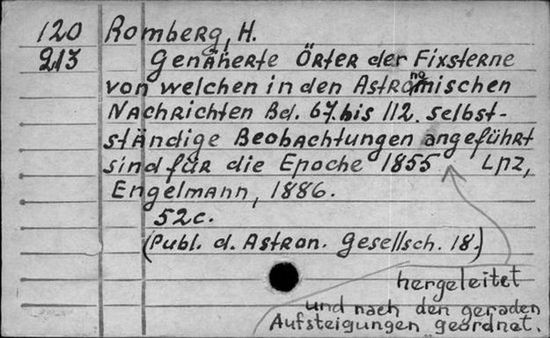 120 Romberg, H.
213 Genäherte Örter der Fixsterne
von welchen in den Astronomischen
Nachrichten Bd. 67. bis 112. selbst-
ständige Beobachtungen angeführt
sind für die Epoche 1855 Lpz,
Engelmann, 1886.
52c.
(Publ. d. Astron. Gesellsch. 18.)
hergeleitet
und nach den geraden
Aufsteigungen geordnet.